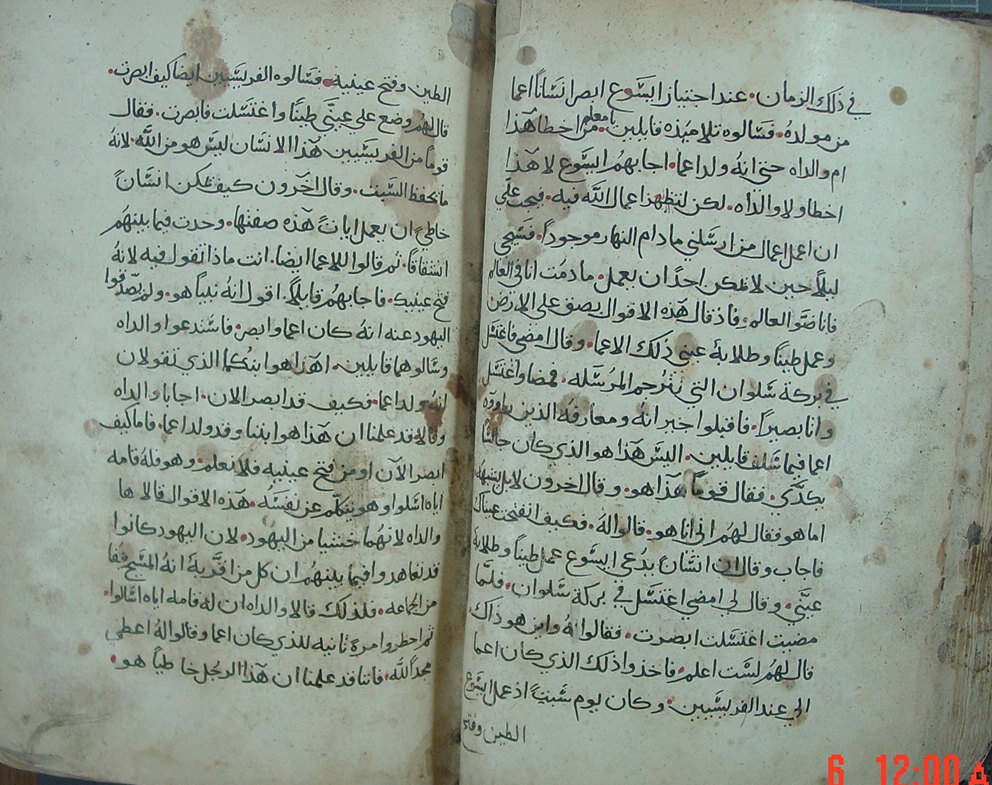 في ذلك الزمان. عند اجتياز ايسوع ابصر انسانًا اعما
من مولده. فسالوه تلاميذه قايلين. يا معلم من اخطا هذا
ام والداه حتى انه ولد اعما. اجابهم ايسوع لا هذا
اخطا ولا والداه. لكن لتظهر اعمال الله فيه. فيجب علي
ان اعمل اعمال من ارسلني ما دام النهار موجوداً. فسيجي
ليلاً حين لا يمكن احدًا ان يعمل. ما دمت انا في العالم
فانا ضوّ العالم. فاذ قال هذه الاقوال بصق على الارض
وعمل طينًا وطلا به عيني ذلك الاعما. وقال امضي فاغتسل
في بركة سلوان التي تترجم المرسله. فمضا واغتسل
وانا بصيراً. فاقبلوا جيرانه ومعارفه الذين راووه
اعما فيما سلف قايلين. اليس هذا هو الذي كان جالسًا
يكدّي. فقال قومًا هذا هو. وقال اخرون لا بل يشبهه
اما هو فقال لهم اني انا هو. قالوا له. فكيف انفتحن عيناك
فاجاب وقال ان انسانً يدعى ايسوع عمل طينًا وطلا به
عينيّ. وقال لي امضي اغتسل في بركة سلوان. فلمّا
مضيت اغتسلت ابصرت. فقالوا له واين هو ذاك.
قال لهم لست اعلم. فاخذوا ذلك الذي كان اعما
الى عند الفريسيين. وكان يوم سبتً اذ عمل ايسوع
الطين وفتح
الطين وفتح عينيه. فسالوه الفريسيين ايضا كيف ابصرت.
قال لهم وضع على عينيّ طينًا واغتسلت فابصرت. فقال
قومًا من الفريسيين هذا الانسان ليس هو من الله. لانه
ما يحفظ السبت. وقال اخرون كيف يمكن انسانً
خاطي ان يعمل اياتً هذه صفتها. وحدث فيما بينهم
انشقاقًا. ثم قالوا للاعما ايضا. انت ماذا تقول فيه لانه
فتح عينيك. فاجابهم قايلاً. اقول انه نبيًا هو. ولم يصدقوا
اليهود عنه انه كان اعما وابصر. فاستدعوا والداه
وسالوهما قايلين. اهذا هو ابنكما الذي تقولان
انه ولد اعما. فكيف قد ابصر الان. اجابا والداه
وقالا قد علمنا ان هذا هو ابننا وقد ولد اعما. فاما كيف
ابصر الآن او من فتح عينيه فلا نعلم. وهو فله قامه
اياه اسلوا وهو يتكلم عن نفسه. هذه الاقوال قالاها
والداه لانهما خشيا من اليهود. لان اليهود كانوا
قد تعاهدوا فيما بينهم ان كل من اقرّ به انه المسيح ينفا
من الجماعه. فلذلك قالا والداه ان له قامه اياه اسالوا.
ثم احطروا مرة ثانيه للذي كان اعما وقالوا له اعطي
مجداً لله. فاننا قد علمنا ان هذا الرجل خاطيًا هو.
6 12:00 A